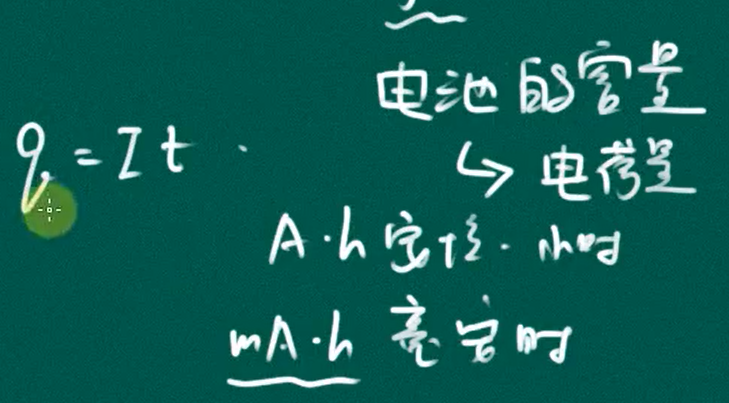 电池的容量
q = It
↳ 电荷量
A·h 安培·小时
mA·h 毫安时